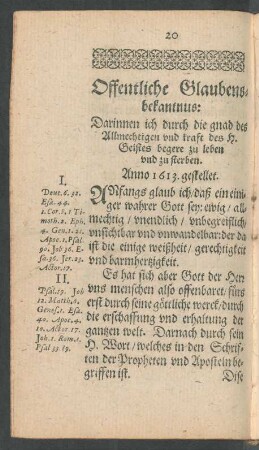 20
Offentliche Glaubens-
bekantnus:
Darinnen ich durch die gnad des
Allmechtigen vnd kraft des H.
Geistes begere zu leben
vnd zu sterben.
Anno 1613. gestellet.
I.
Deut. 6. 32.
Esa. 44.
1. Cor. 8. 1 Ti-
moth. 2. Eph.
4. Gen. 1. 21.
Apoc. 1. Psal.
90. Job 36. E-
sa. 36. Jer. 23.
Actor. 17.
ANfangs glaub ich / daß ein eini-
ger wahrer Gott sey: ewig / all-
mechtig / vnendlich / vnbegreiflich /
vnsichtbar vnd vnwandelbar: der da
ist die einige weißheit / gerechtigkeit
vnd barmhertzigkeit.
II.
Psal. 19. Job
12. Matth. 6.
Genes. 1. Esa.
40. Apoc. 4.
10. Actor. 17.
Joh. 1. Rom. 1.
Psal 33. 19.
Es hat sich aber Gott der Herr
vns menschen also offenbaret / fürs
erst durch seine göttliche werck / durch
die erschaffung vnd erhaltung der
gantzen welt. Darnach durch sein
H. Wort / welches in den Schrif-
ten der Propheten vnd Aposteln be-
griffen ist.
Dise